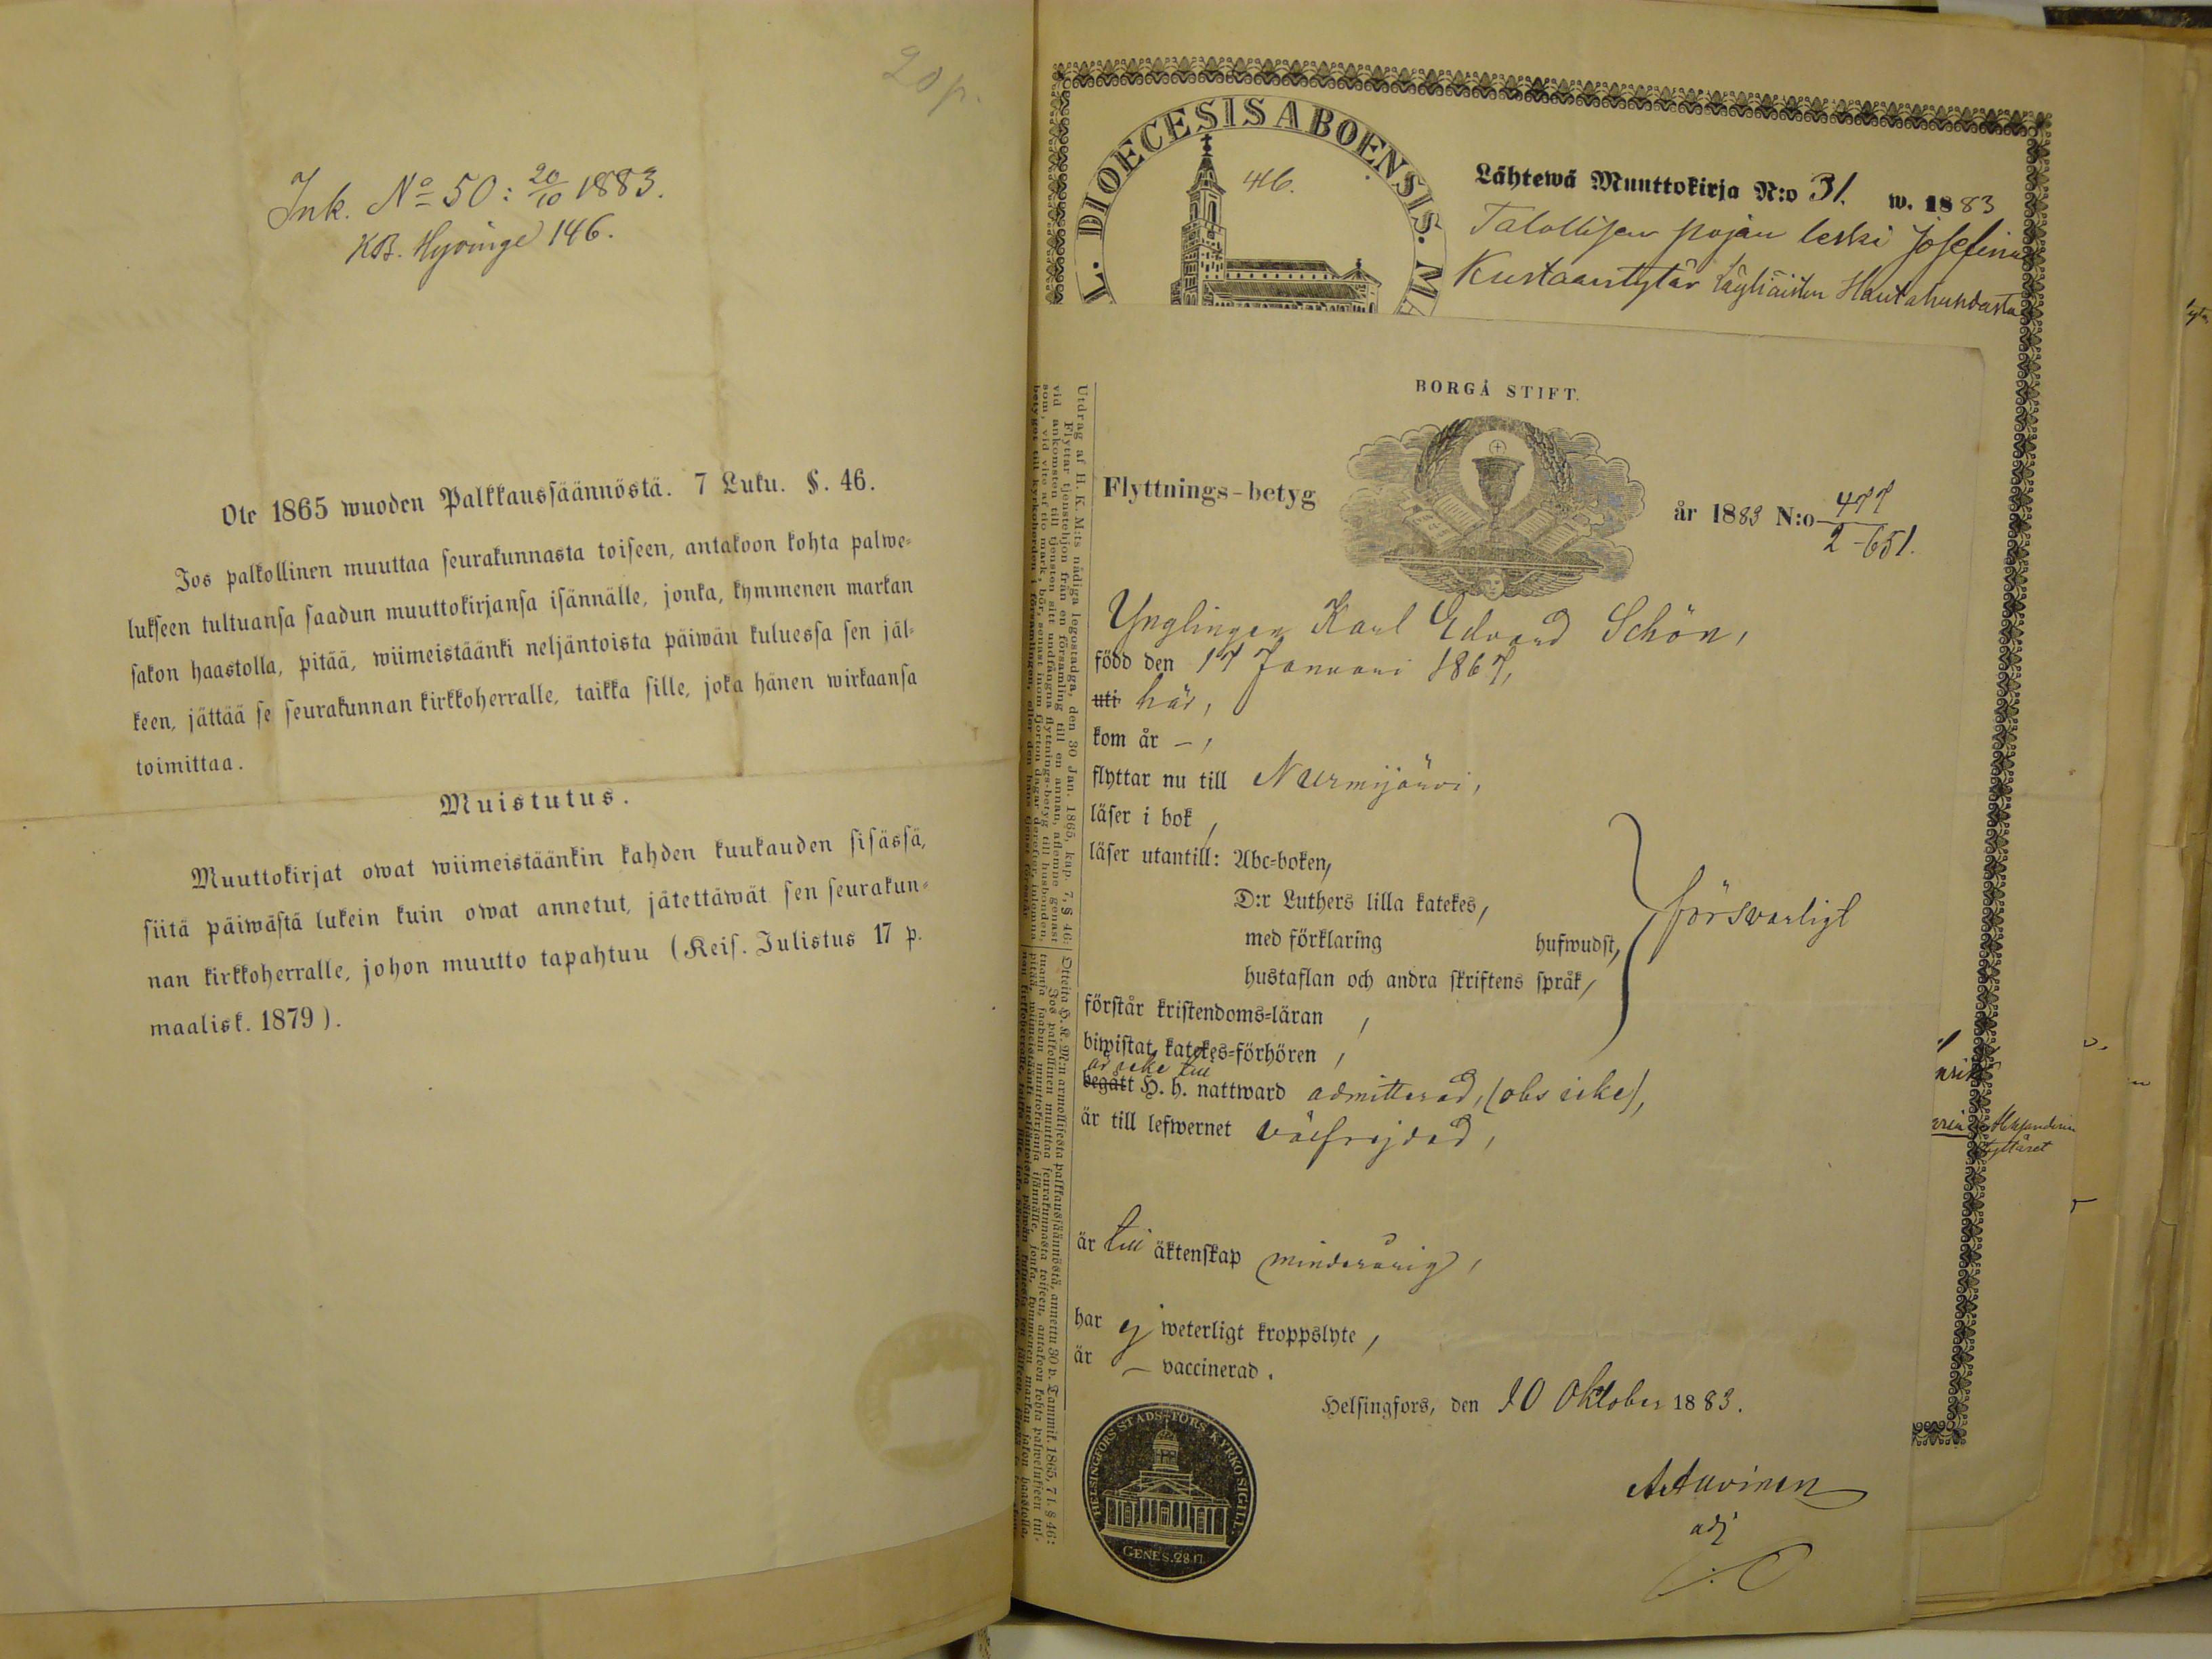 20 p.
Ink. No 50: 20/10 1883.
KB. Hyvinge 146.
Ote 1865 wuoden Palkkaussäännöstä. 7 Luku. §. 46.
Jos palkollinen muuttaa seurakunnasta toiseen, antakoon kohta palwe-
lukseen tultuansa saadun muuttokirjansa isännälle, jonka, kymmenen markan
sakon haastolla, pitää, wiimeistäänki neljäntoista päiwän kuluessa sen jäl-
keen, jättää se seurakunnan kirkkoherralle, taikka sille, joka hänen wirkaansa
toimittaa.
Muistutus.
Muuttokirjat owat wiimeistäänkin kahden kuukauden sisässä,
siitä päiwästä lukein kuin owat annetut, jätettäwät sen seurakun-
nan kirkkoherralle, johon muutto tapahtuu (Keis. Julistus 17 p.
maalisk. 1879).
L. DIOECESIS ABOENSIS. MA
46.
Lähtewä Muuttokirja N:o 31. w. 1883
Talollisen pojan leski Josefina
Kustaantytär
BORGÅ STIFT.
Flyttnings-betyg
år 1883 N:o 477
2-651.
Ynglingen Karl Edvard Schön,
född den 17 Januari 1867,
uti här,
kom år –,
flyttar nu till Nurmijärvi,
läser i bok,
läser utantill: Abc-boken,
D:r Luthers lilla katekes,
med förklaring hufwudst,
hustaflan och andra skriftens språk,
försvarligt
förstår kristendoms-läran,
biwistat katekes-förhören,
är icke till
begått H. h. nattward admitterad, (obs icke),
är till lefwernet välfrejdad,
är till äktenskap minderårig,
har ej weterligt kroppslyte,
är – vaccinerad.
Helsingfors, den 10 Oktober 1883.
adj
HELSINGFORS STADS-FÖRS. KYRKO SIGILL.
GENES. 28.17.
Utdrag af H. K. M:ts nådiga legostadga, den 30 Jan. 1865, kap. 7, § 46:
Flyttar tjenstehjon från en församling till en annan, aflemne genast
vid ankomsten till tjensten sitt undfångna flyttnings-betyg till husbonden,
som, vid vite af tio mark, bör, senast inom fjorton dagar derefter, inlemna
betyget till kyrkoherden i församlingen, eller den hans
Otteita H. K. M:n armollisesta palkkaussäännöstä, annettu 30 p. Tammik. 1865, 7 l. § 46:
Jos palkollinen muuttaa seurakunnasta toiseen, antakoon kohta palwelukseen tul-
tuansa saadun muuttokirjansa isännälle, jonka, kymmenen markan sakon haastolla,